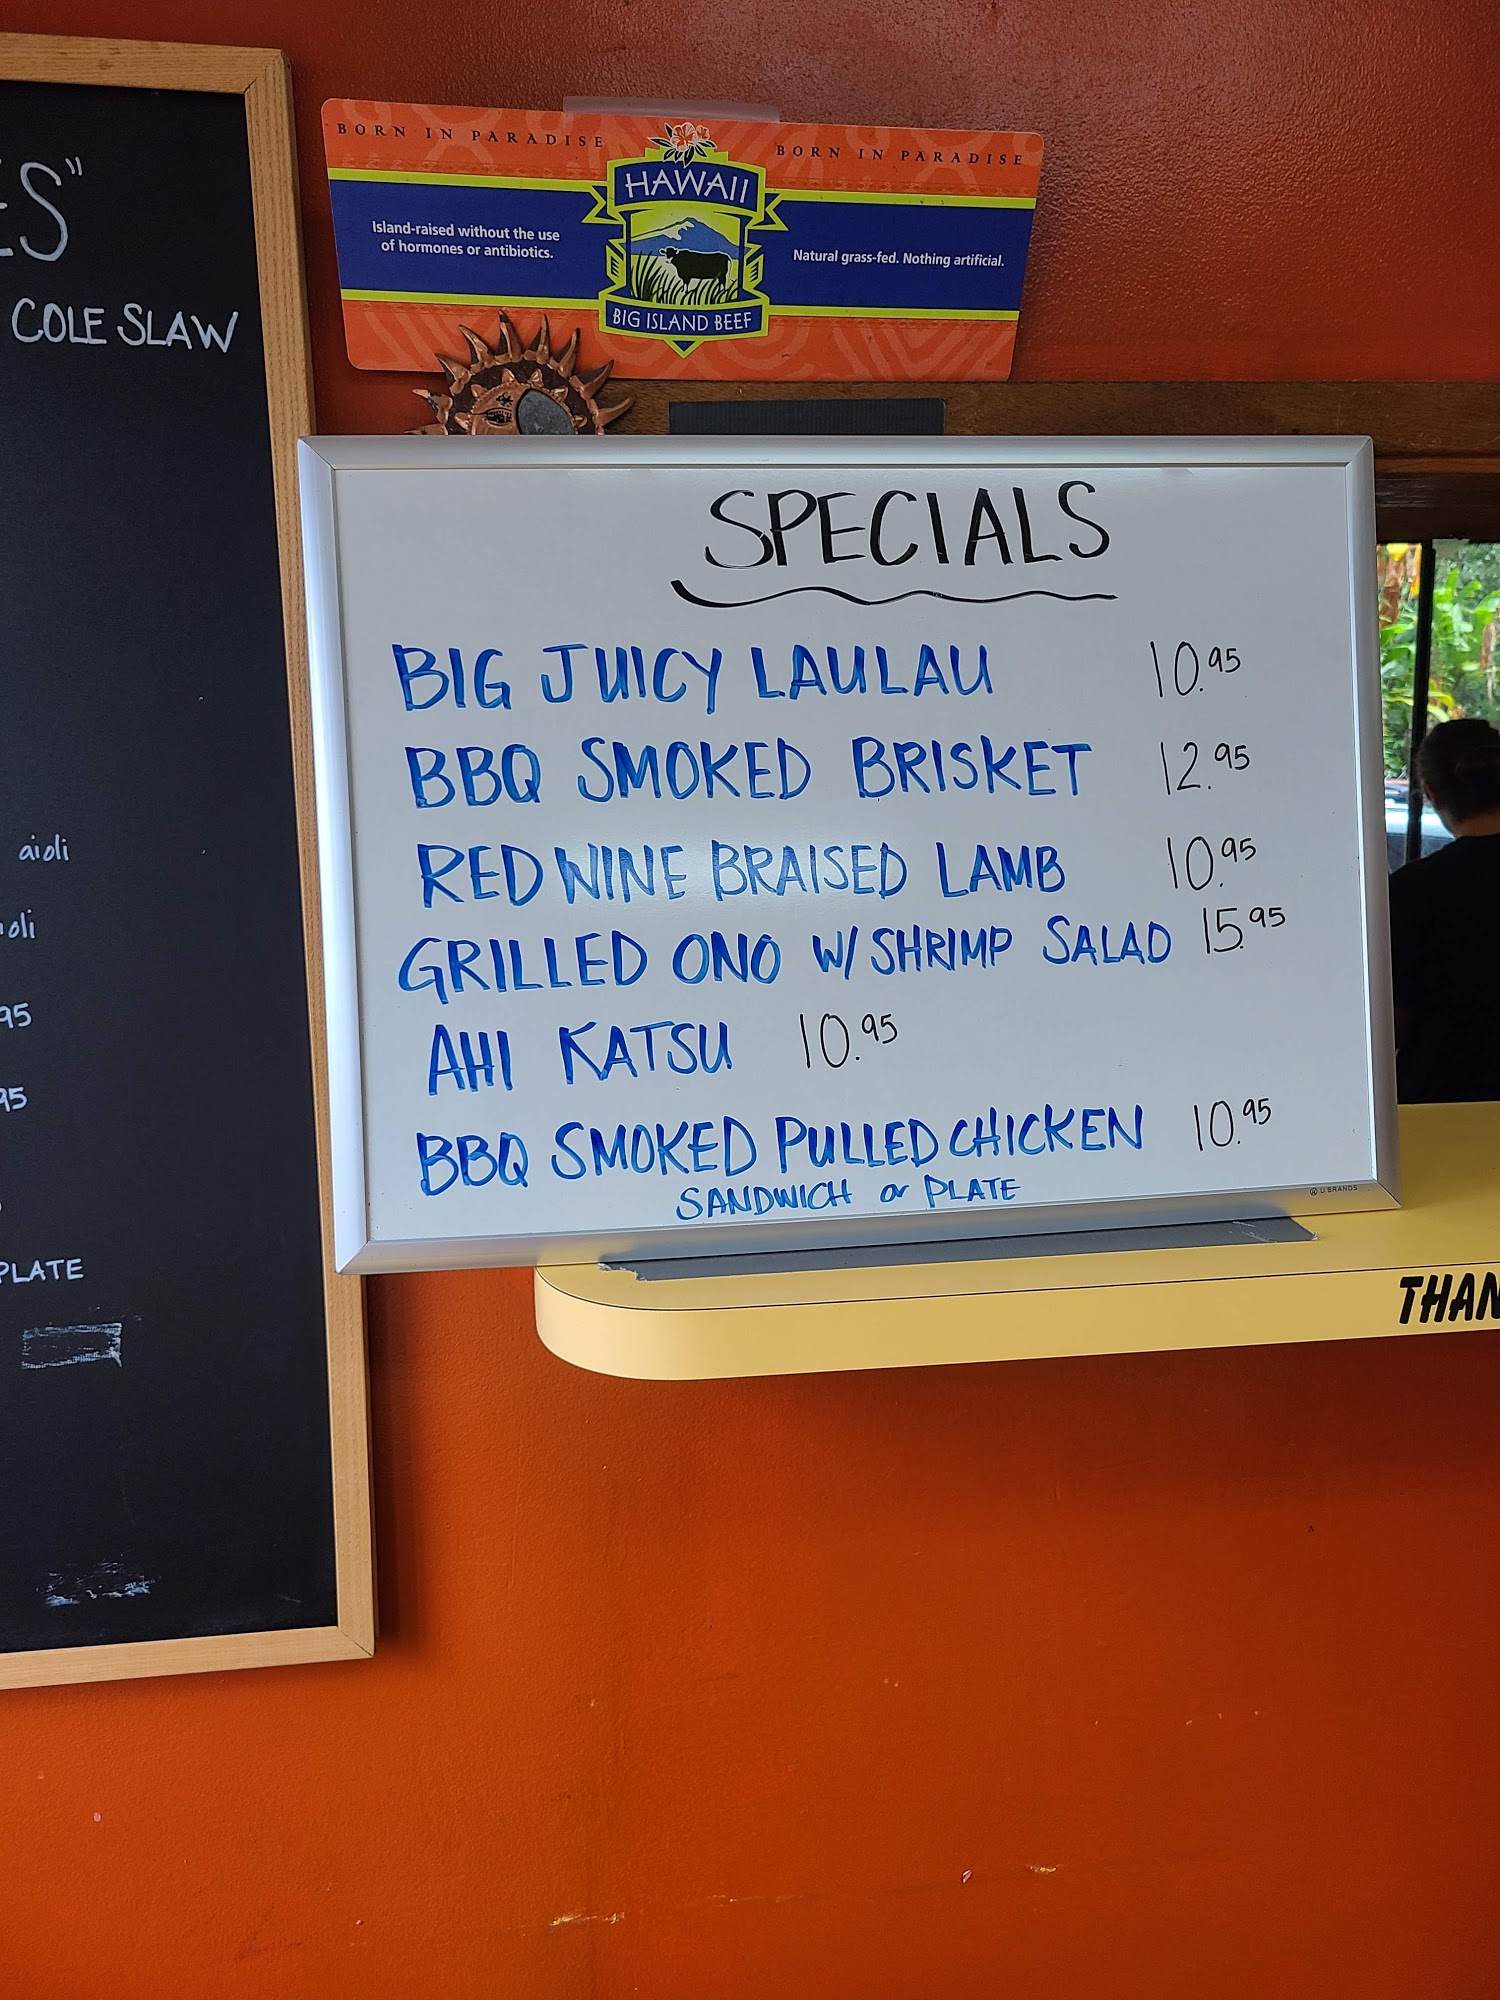 ES"
COLE SLAW
aioli
95
95
PLATE
BORN IN PARADISE
BORN IN PARADISE
HAWAII
BIG ISLAND BEEF
Island-raised without the use
of hormones or antibiotics.
Natural grass-fed. Nothing artificial.
SPECIALS
BIG JUICY LAULAU 10.95
BBQ SMOKED BRISKET 12.95
RED WINE BRAISED LAMB 10.95
GRILLED ONO W/ SHRIMP SALAD 15.95
AHI KATSU 10.95
BBQ SMOKED PULLED CHICKEN 10.95
SANDWICH or PLATE
U BRANDS
THAN